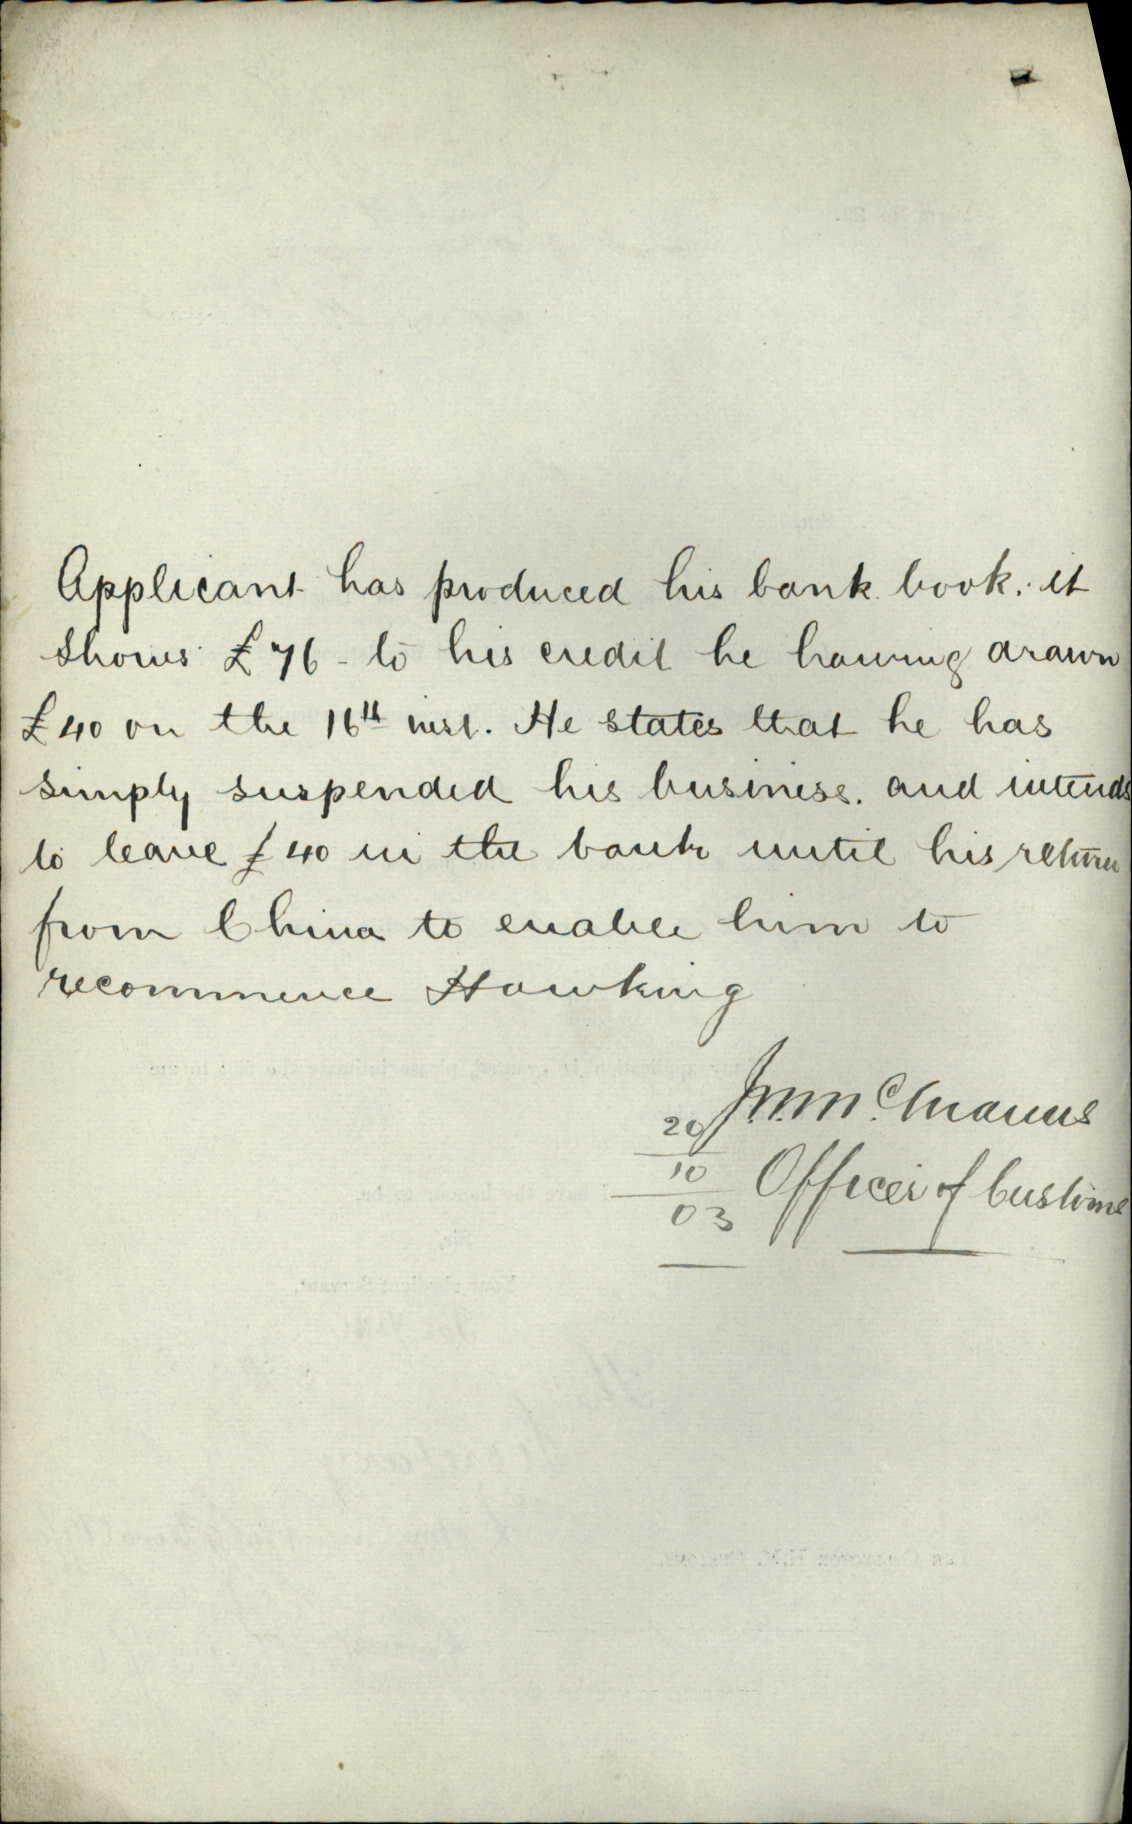 Applicant has produced his bank book. it
shows £76 - to his credit he having drawn
£40 on the 16th inst. He states that he has
simply suspended his business. and intends
to leave £40 in the bank until his return
from China to enable him to
recommence Hawking
J.M. McManus
20
10 Officer of Customs
03